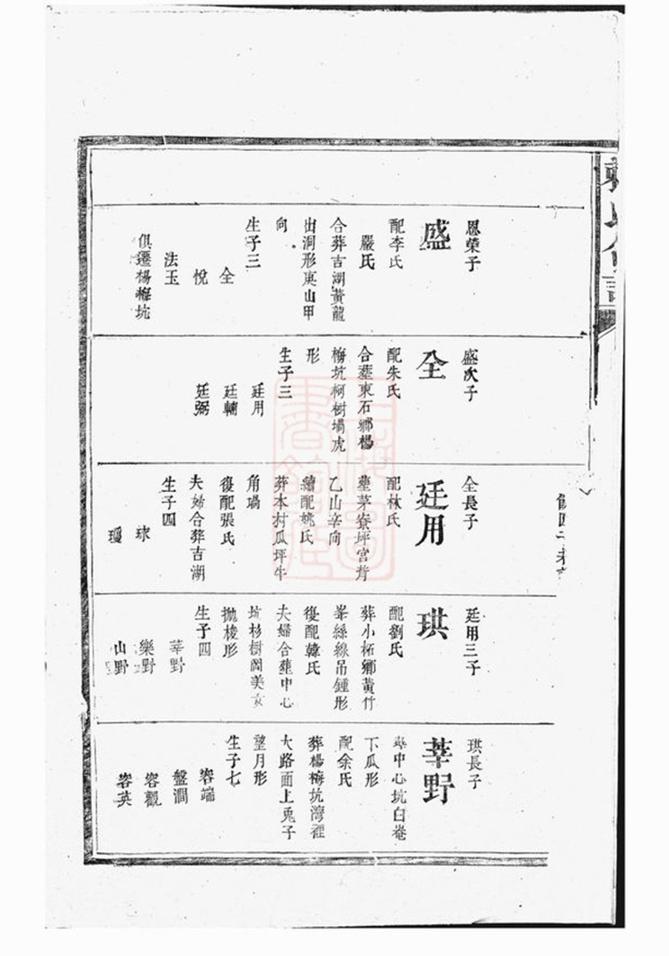 恩榮子
盛
配李氏
嚴氏
合葬吉湖黃龍
出洞形庚山甲
向
生子三
全
悅
法玉
俱遷楊梅坑
盛次子
全
配朱氏
合塟東石鄉楊
梅坑柯樹塲虎
形
生子三
廷用
廷輔
廷弼
全長子
廷用
配林氏
塟茅寮坪官背
乙山辛向
續配姚氏
葬本村瓜坪牛
角塲
復配張氏
夫婦合葬吉湖
生子四
球
廷用三子
珙
配劉氏
葬小柘鄉黃竹
峯絲線吊鍾形
復配韓氏
夫婦合塟中心
坑杉樹岡美女
拋梭形
生子四
莘野
樂野
山野
珙長子
莘野
塟中心坑白菴
下瓜形
配余氏
葬楊梅坑灣裡
大路面上兎子
望月形
生子七
容端
盤澗
容觀
容英